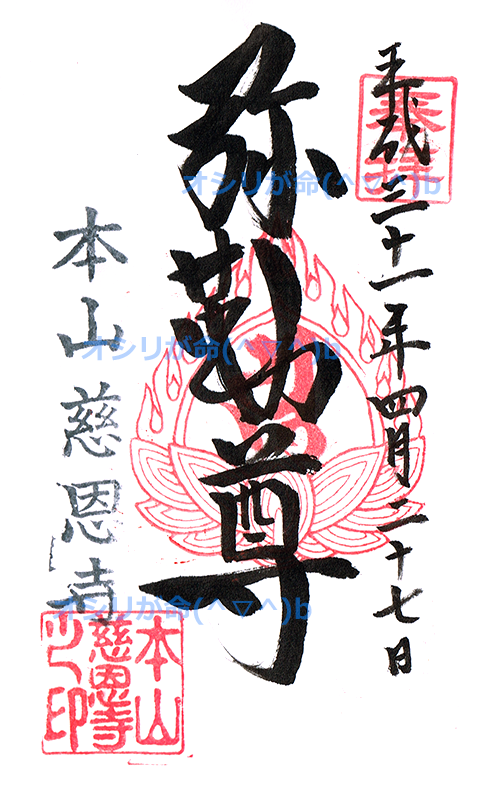 奉拝
平成三十一年四月二十七日
弥勒尊
本山慈恩寺
本山
慈恩寺
之印
オシリが命(^▽^)b
オシリが命(^▽^)b
オシリが命(^▽^)b